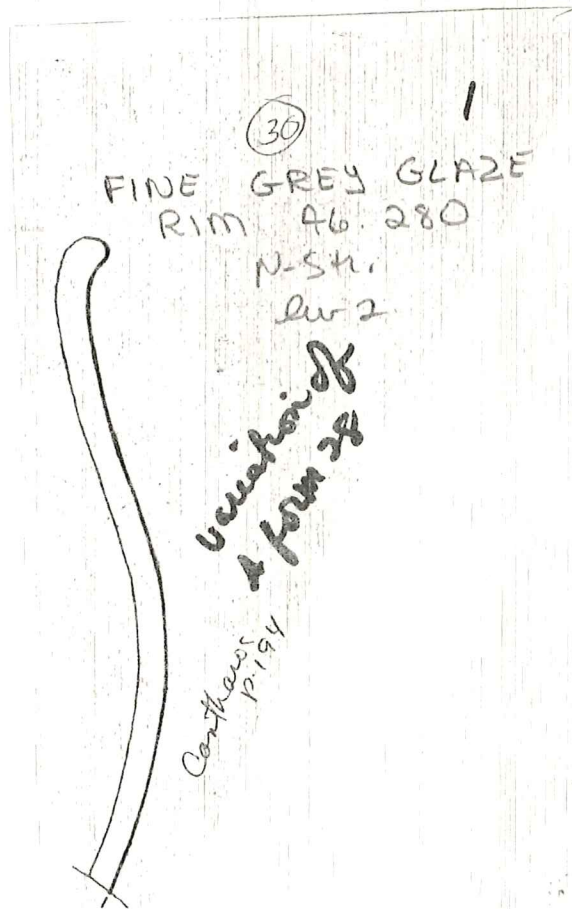 1
30
FINE GREY GLAZE
RIM A6. 280
N-Str.
lev 2
variation of
form 28
Cantharos
p. 194